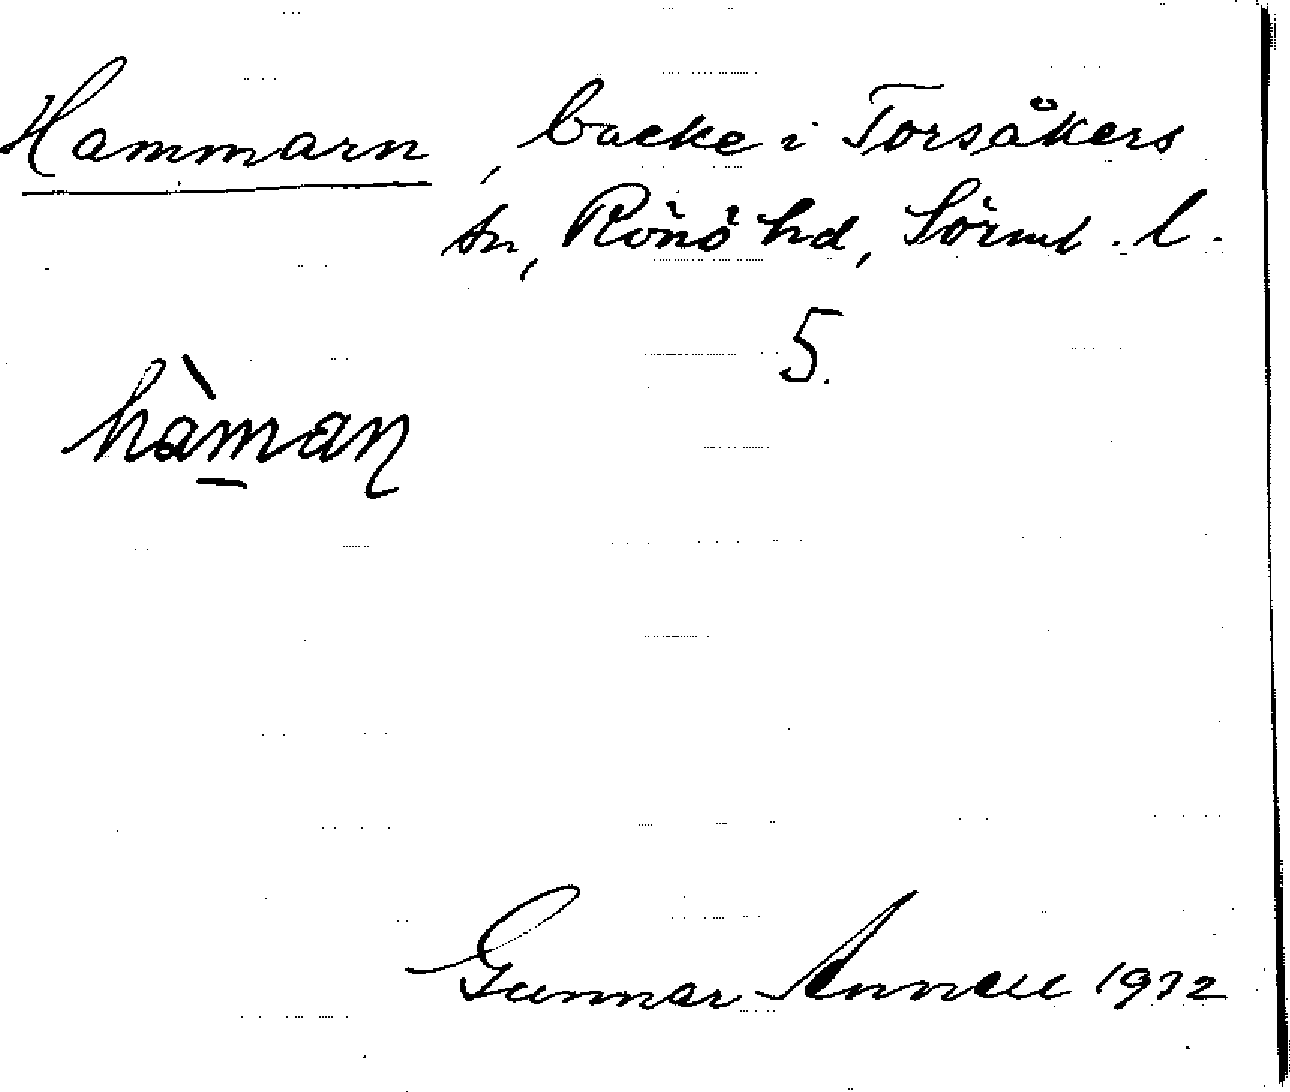 Hammarn, backe i Torsåkers
sn, Rönö hd, Sörml. l.
5.
hàmaɳ
Gunnar Annell 1972